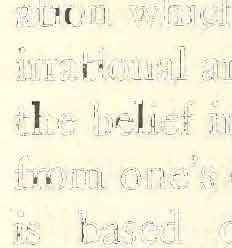 ation which
irrational an
the belief in
from one's
is based